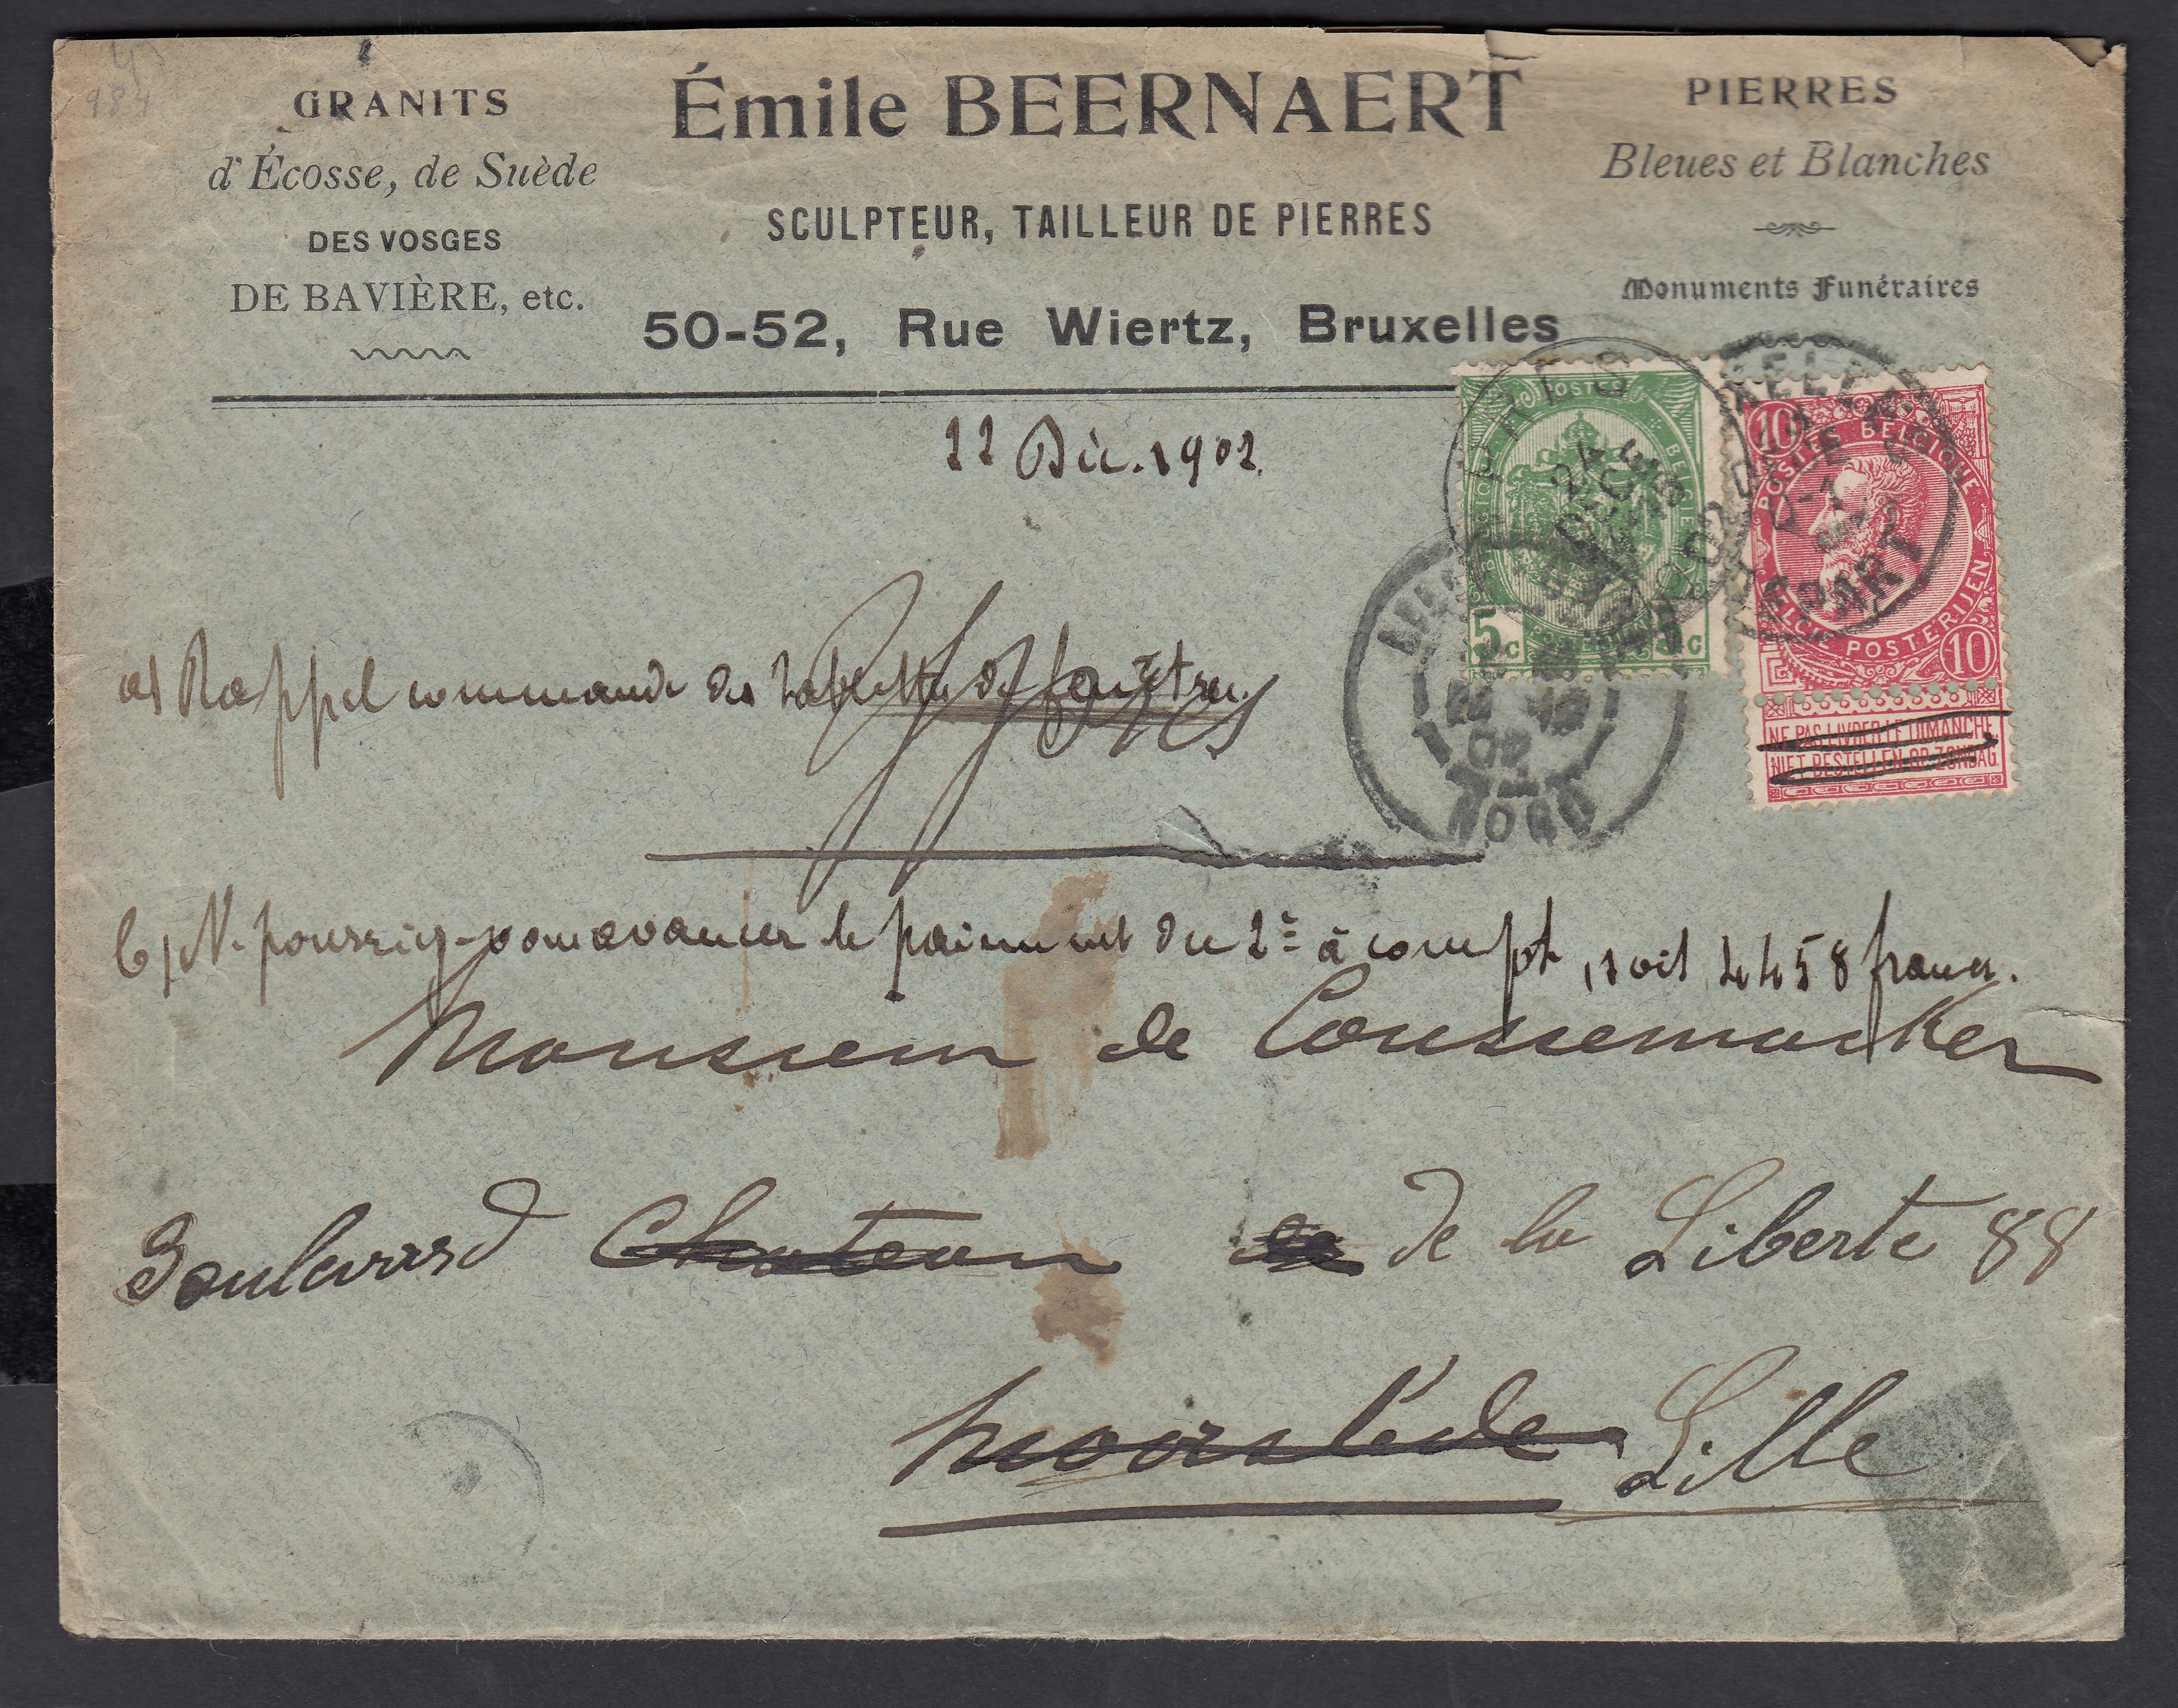 GRANITS
d'Écosse, de Suède
DES VOSGES
DE BAVIÈRE, etc.
Émile BEERNAERT
SCULPTEUR, TAILLEUR DE PIERRES
50-52, Rue Wiertz, Bruxelles
PIERRES
Bleues et Blanches
Monuments Funéraires
22 Déc. 1902.
POSTES
5 c
5 c
10
POSTES BELGIQUE
BELGIE POSTERIJEN
10
NE PAS LIVRER LE DIMANCHE
NIET BESTELLEN OP ZONDAG
PARIS
DEPART
02
NORD
a/ Rappel commande des tablettes de fenêtres
b/ N. pourriez-vous avancer le paiement du 2e à compte, soit 4458 francs.
Monsieur de Coussemacker
Boulevard Chateau de de la Liberté 88
Lille